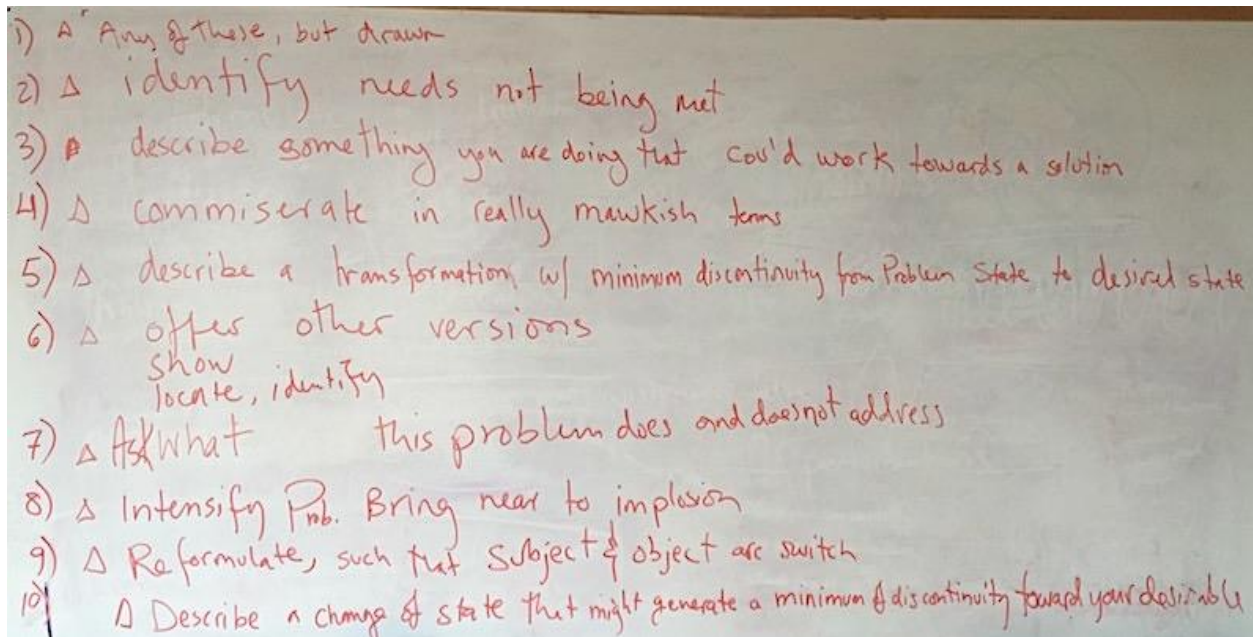 1) Δ Any of these, but drawn
2) Δ identify needs not being met
3) Δ describe something you are doing that cou'd work towards a solution
4) Δ commiserate in really mawkish terms
5) Δ describe a transformation w/ minimum discontinuity from Problem State to desired state
6) Δ offer other versions
show
locate, identify
7) Δ Ask What this problem does and doesnot address
8) Δ Intensify Prob. Bring near to implosion
9) Δ Reformulate, such that Subject & object are switch
10) Δ Describe a change of state that might generate a minimum of discontinuity toward your desirable